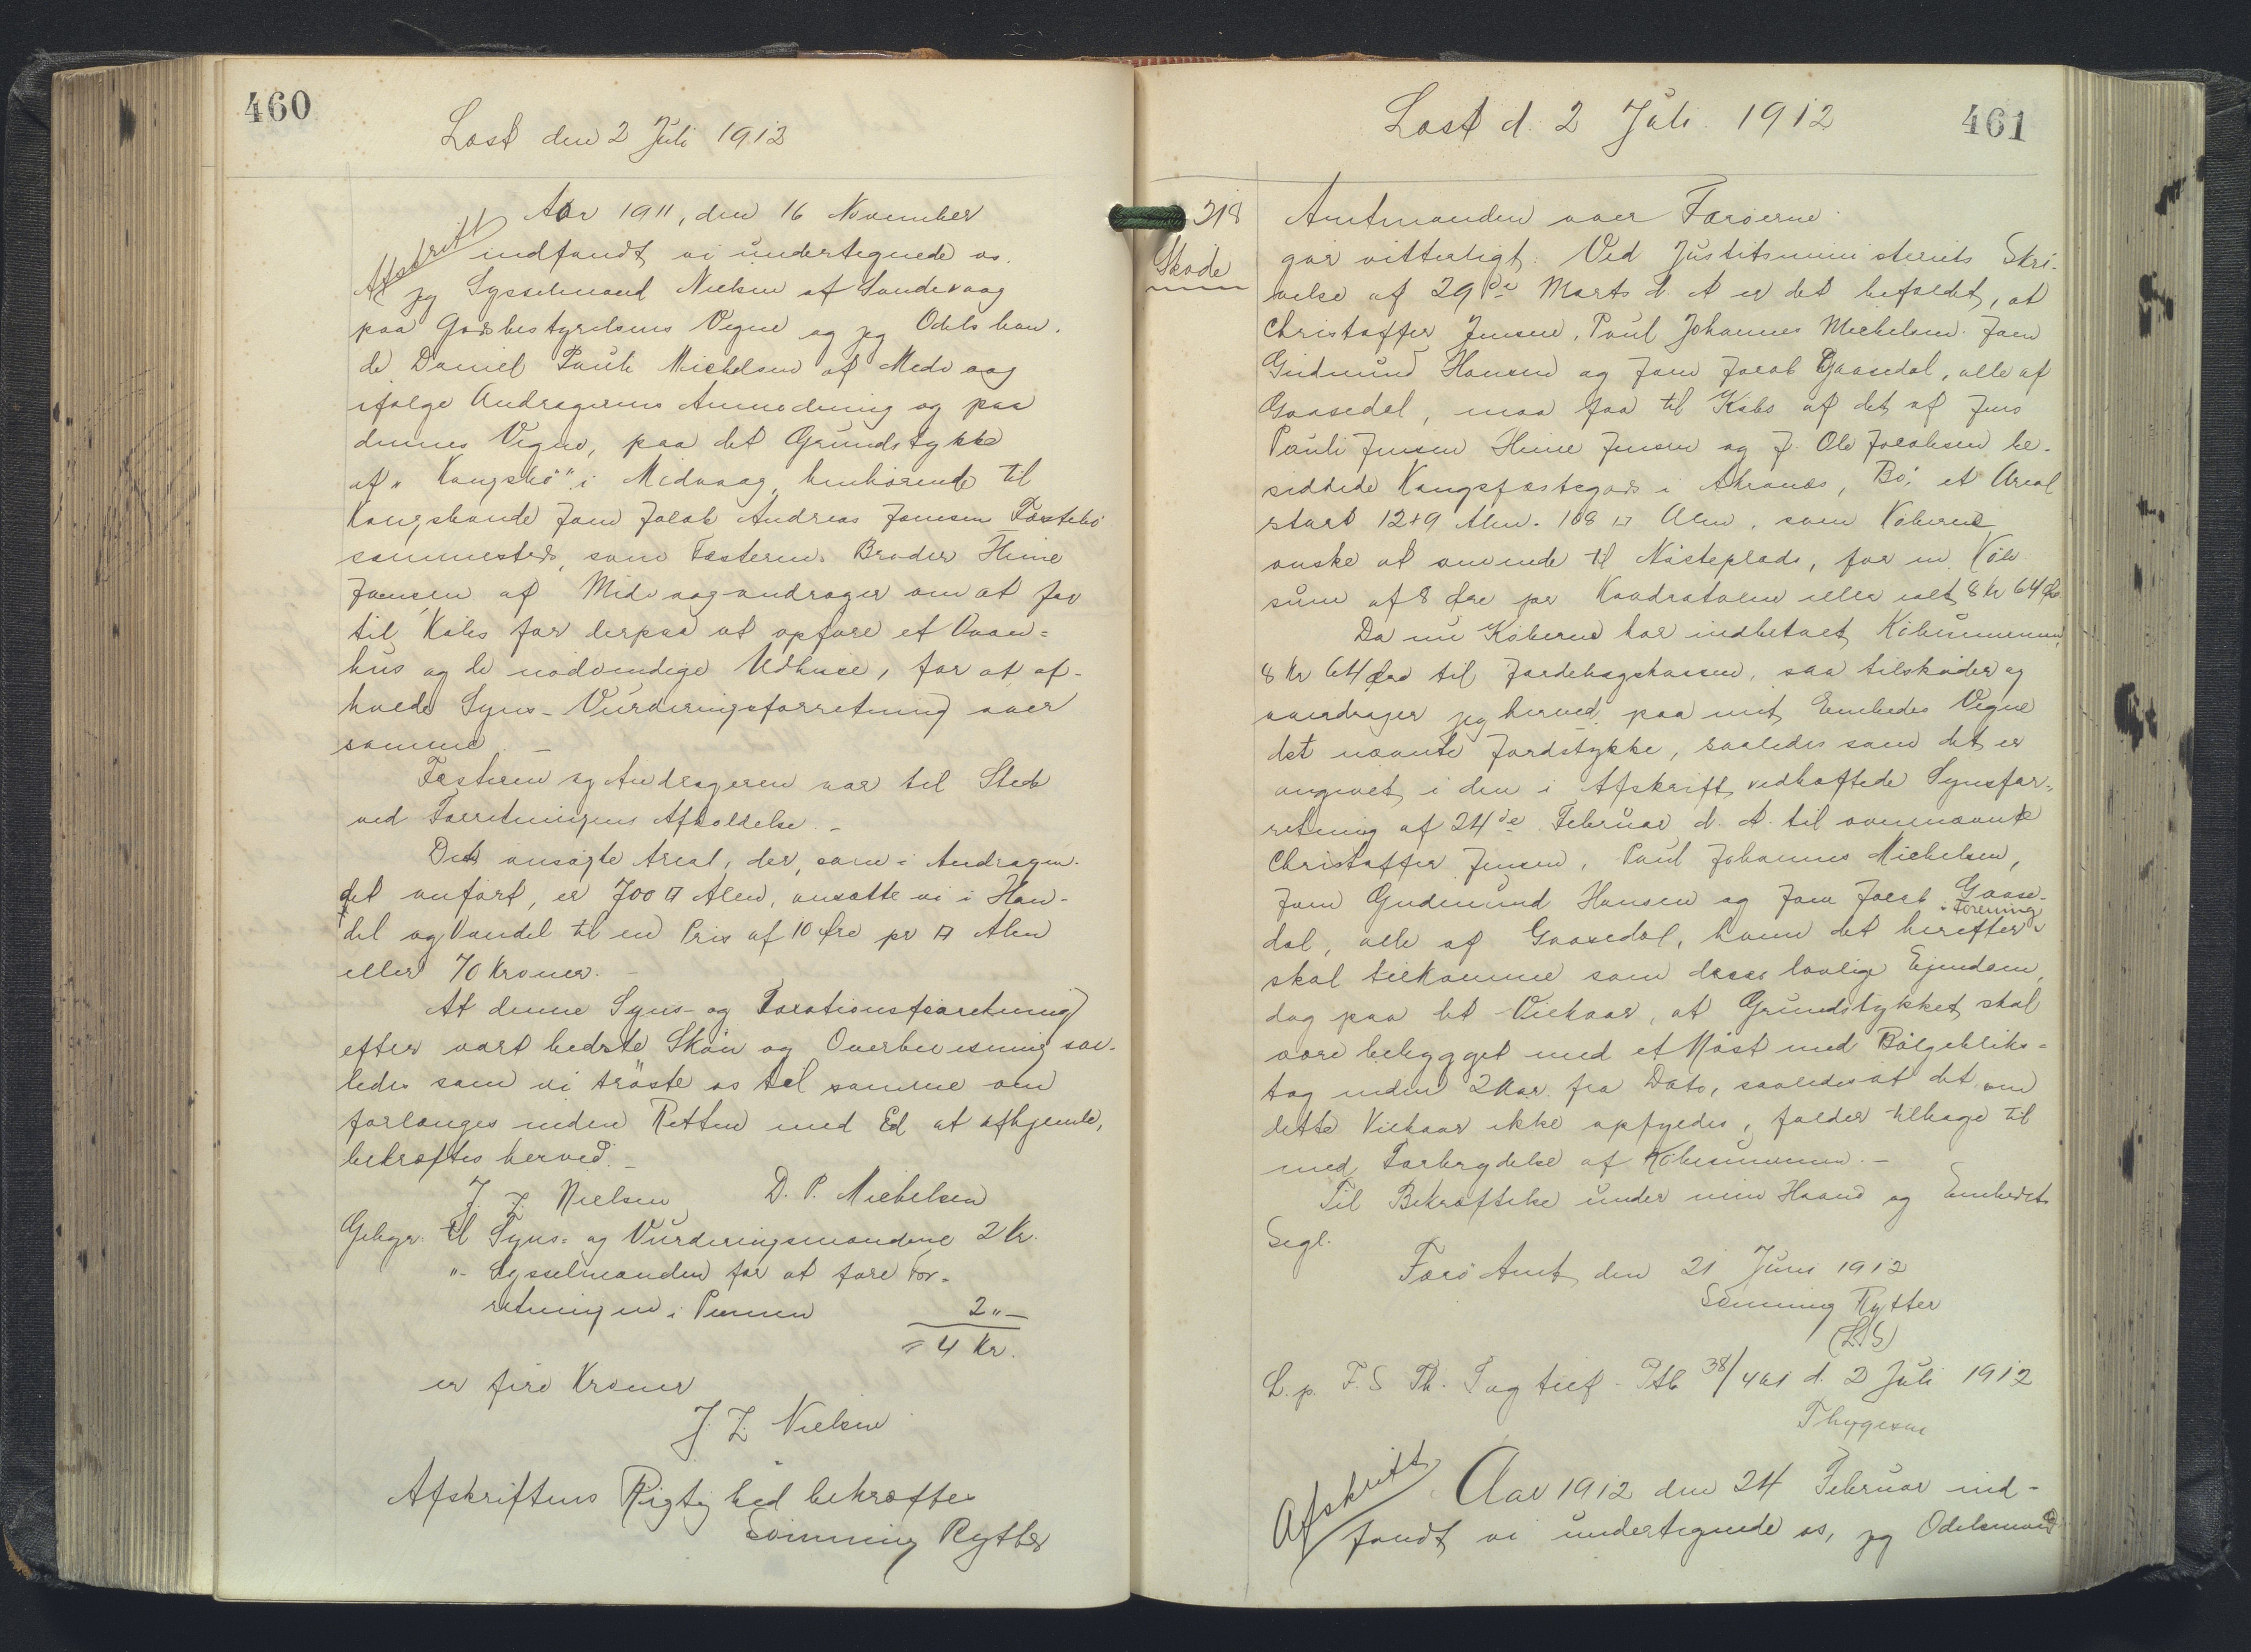 460
Læst den 2 Juli 1912
Afskrift
Aar 1911, den 16 November
indfandt vi undertegnede os.
jeg Sysselmand Nielsen af Sandevaag
paa Gaardsbestyrelsens Vegne og jeg Odelsbon-
de Daniel Pauli Michelsen af Midvaag
ifølge Andragerens Anmodning og paa
dennes Vegne, paa det Grundstykke
af "Kongsbø" i Midvaag, henhørende til
Kongsbonde Joen Jacob Andreas Joensens Fæstebø
sammesteds, som Fæsterens Broder Heine
Joensen af Midvaag andrager om at faa
til Købs for derpaa at opføre et Vaan=
hus og de nødvendige Udhuse, for at af-
holde Syns- Vurderingsforretning over
samme. –
Fæsteren og Andrageren var til Stede
ved Forretningens Afholdelse. –
Det ansøgte Areal, der, som i Andragen-
det anført, er 700 □ Alen, ansatte vi i Han-
del og Vandel til en Pris af 10 Øre pr □ Alen
eller 70 Kroner. –
At denne Syns- og Taxationsforretning
efter vort bedste Skøn og Overbevisning saa-
ledes som vi trøste os til samme om
forlanges inden Retten med Ed at afhjemle,
bekræftes herved. –
J. Z. Nielsen D. P. Michelsen
Gebyr til Syns- og Vurderingsmændene 2 Kr.
"- Sysselmanden for at føre For-
retningen i Pennen 2 "-
= 4 Kr.
er fire Kroner
J. Z. Nielsen
Afskriftens Rigtighed bekræftes
Svenning Rytter
Læst d. 2 Juli 1912
461
318
Skøde
Amtmanden over Færøerne
gør vitterligt: Ved Justitsministeriets Skri-
velse af 29de Marts d. A. er det befalet, at
Christoffer Jensen, Poul Johannes Michelsen, Joen
Gudmund Hansen og Joen Jacob Gaasedal, alle af
Gaasedal, maa faa til Købs af det af Jens
Pauli Jensen Heine Jensen og J. Ole Jacobsen be-
siddede Kongsfæstegods i Akranæs, Bø, et Areal
stort 12 × 9 Alen. 108 □ Alen, som Køberne
ønske at anvende til Nøsteplads, for en Købe
sum af 8 Øre pr Kvadratalen eller ialt 8 Kr 64 Øre.
Da nu Køberne har indbetalt Købesummen,
8 Kr 64 Øre til Jordebogskassen, saa tilskøder og
overdrager jeg herved paa mit Embedes Vegne
det nævnte Jordstykke, saaledes som det er
angivet i den i Afskrift vedhæftede Synsfor-
retning af 24de Februar d. A. til ovennævnte
Christoffer Jensen, Poul Johannes Michelsen,
Joen Gudmund Hansen og Joen Jacob Gaase-
dal, alle af Gaasedal, hvem det herefter i Forening
skal tilkomme som deres lovlige Ejendom,
dog paa det Vilkaar, at Grundstykket skal
være bebygget med et Nøst med Bølgebliks-
tag inden 2 Aar fra Dato, saaledes at det, om
dette Vilkaar ikke opfyldes, falder tilbage til
med Forbrydelse af Købesummen. –
Til Bekræftelse under min Haand og Embedets
Segl.
Færø Amt, den 21 Juni 1912
Svenning Rytter
(L.S)
L. p. F. S. Th. Ptb 38/461 d. 2 Juli 1912
Thygesen
Afskrift
Aar 1912 den 24 Februar ind-
fandt vi undertegnede os, jeg Odelsmand